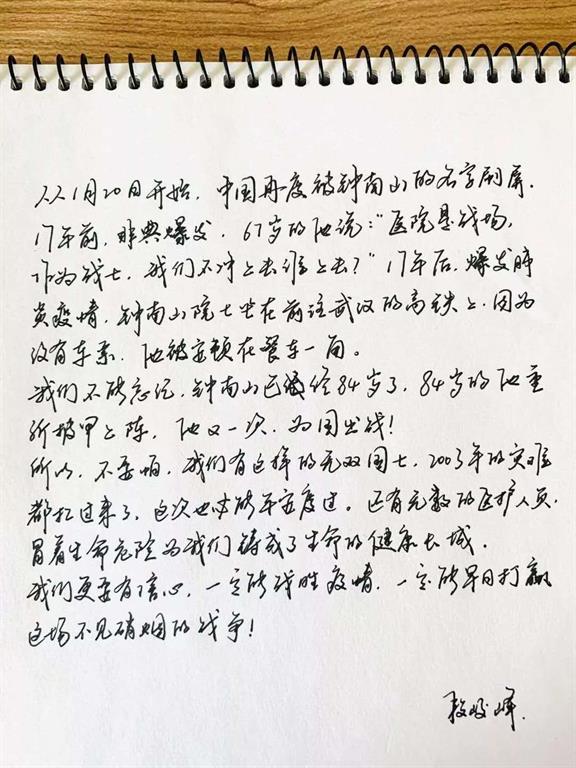 从1月20日开始，中国再度被钟南山的名字刷屏.
17年前，非典爆发，67岁的他说："医院是战场，
作为战士，我们不冲上去谁上去?"17年后，爆发肺
炎疫情，钟南山院士坐在前往武汉的高铁上，因为
没有车票，他被安顿在餐车一角。
我们不能忘记，钟南山已经84岁了，84岁的他重
新披甲上阵，他又一次，为国出战!
所以，不要怕，我们有这样的无双国士，2003年的灾难
都扛过来了，这次也能平安度过。还有无数的医护人员，
冒着生命危险为我们铸成了生命的健康长城.
我们更要有信心，一定能战胜疫情，一定能早日打赢
这场不见硝烟的战争!
峰.